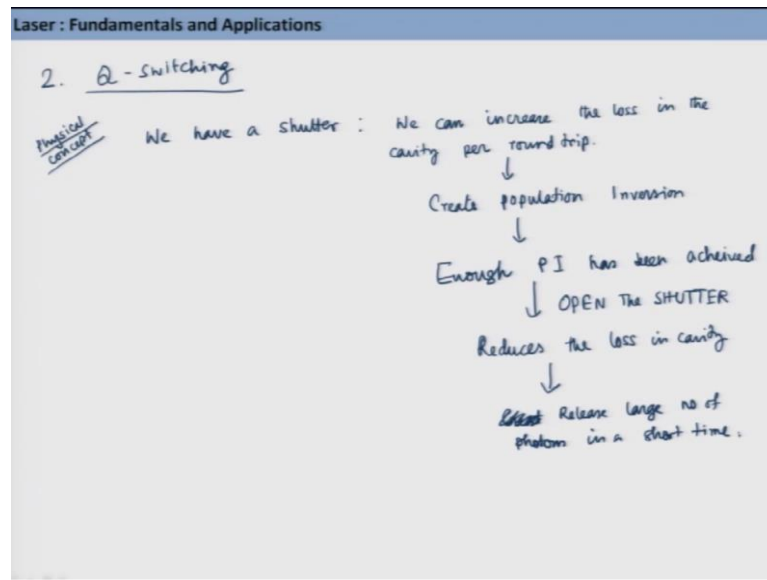 Laser : Fundamentals and Applications
2. Q - Switching
Physical concept
We have a shutter : We can increase the loss in the
cavity per round trip.
↓
Create population Inversion
↓
Enough PI has been acheived
↓ OPEN The SHUTTER
Reduces the loss in cavity
↓
Release large no of
photom in a short time.